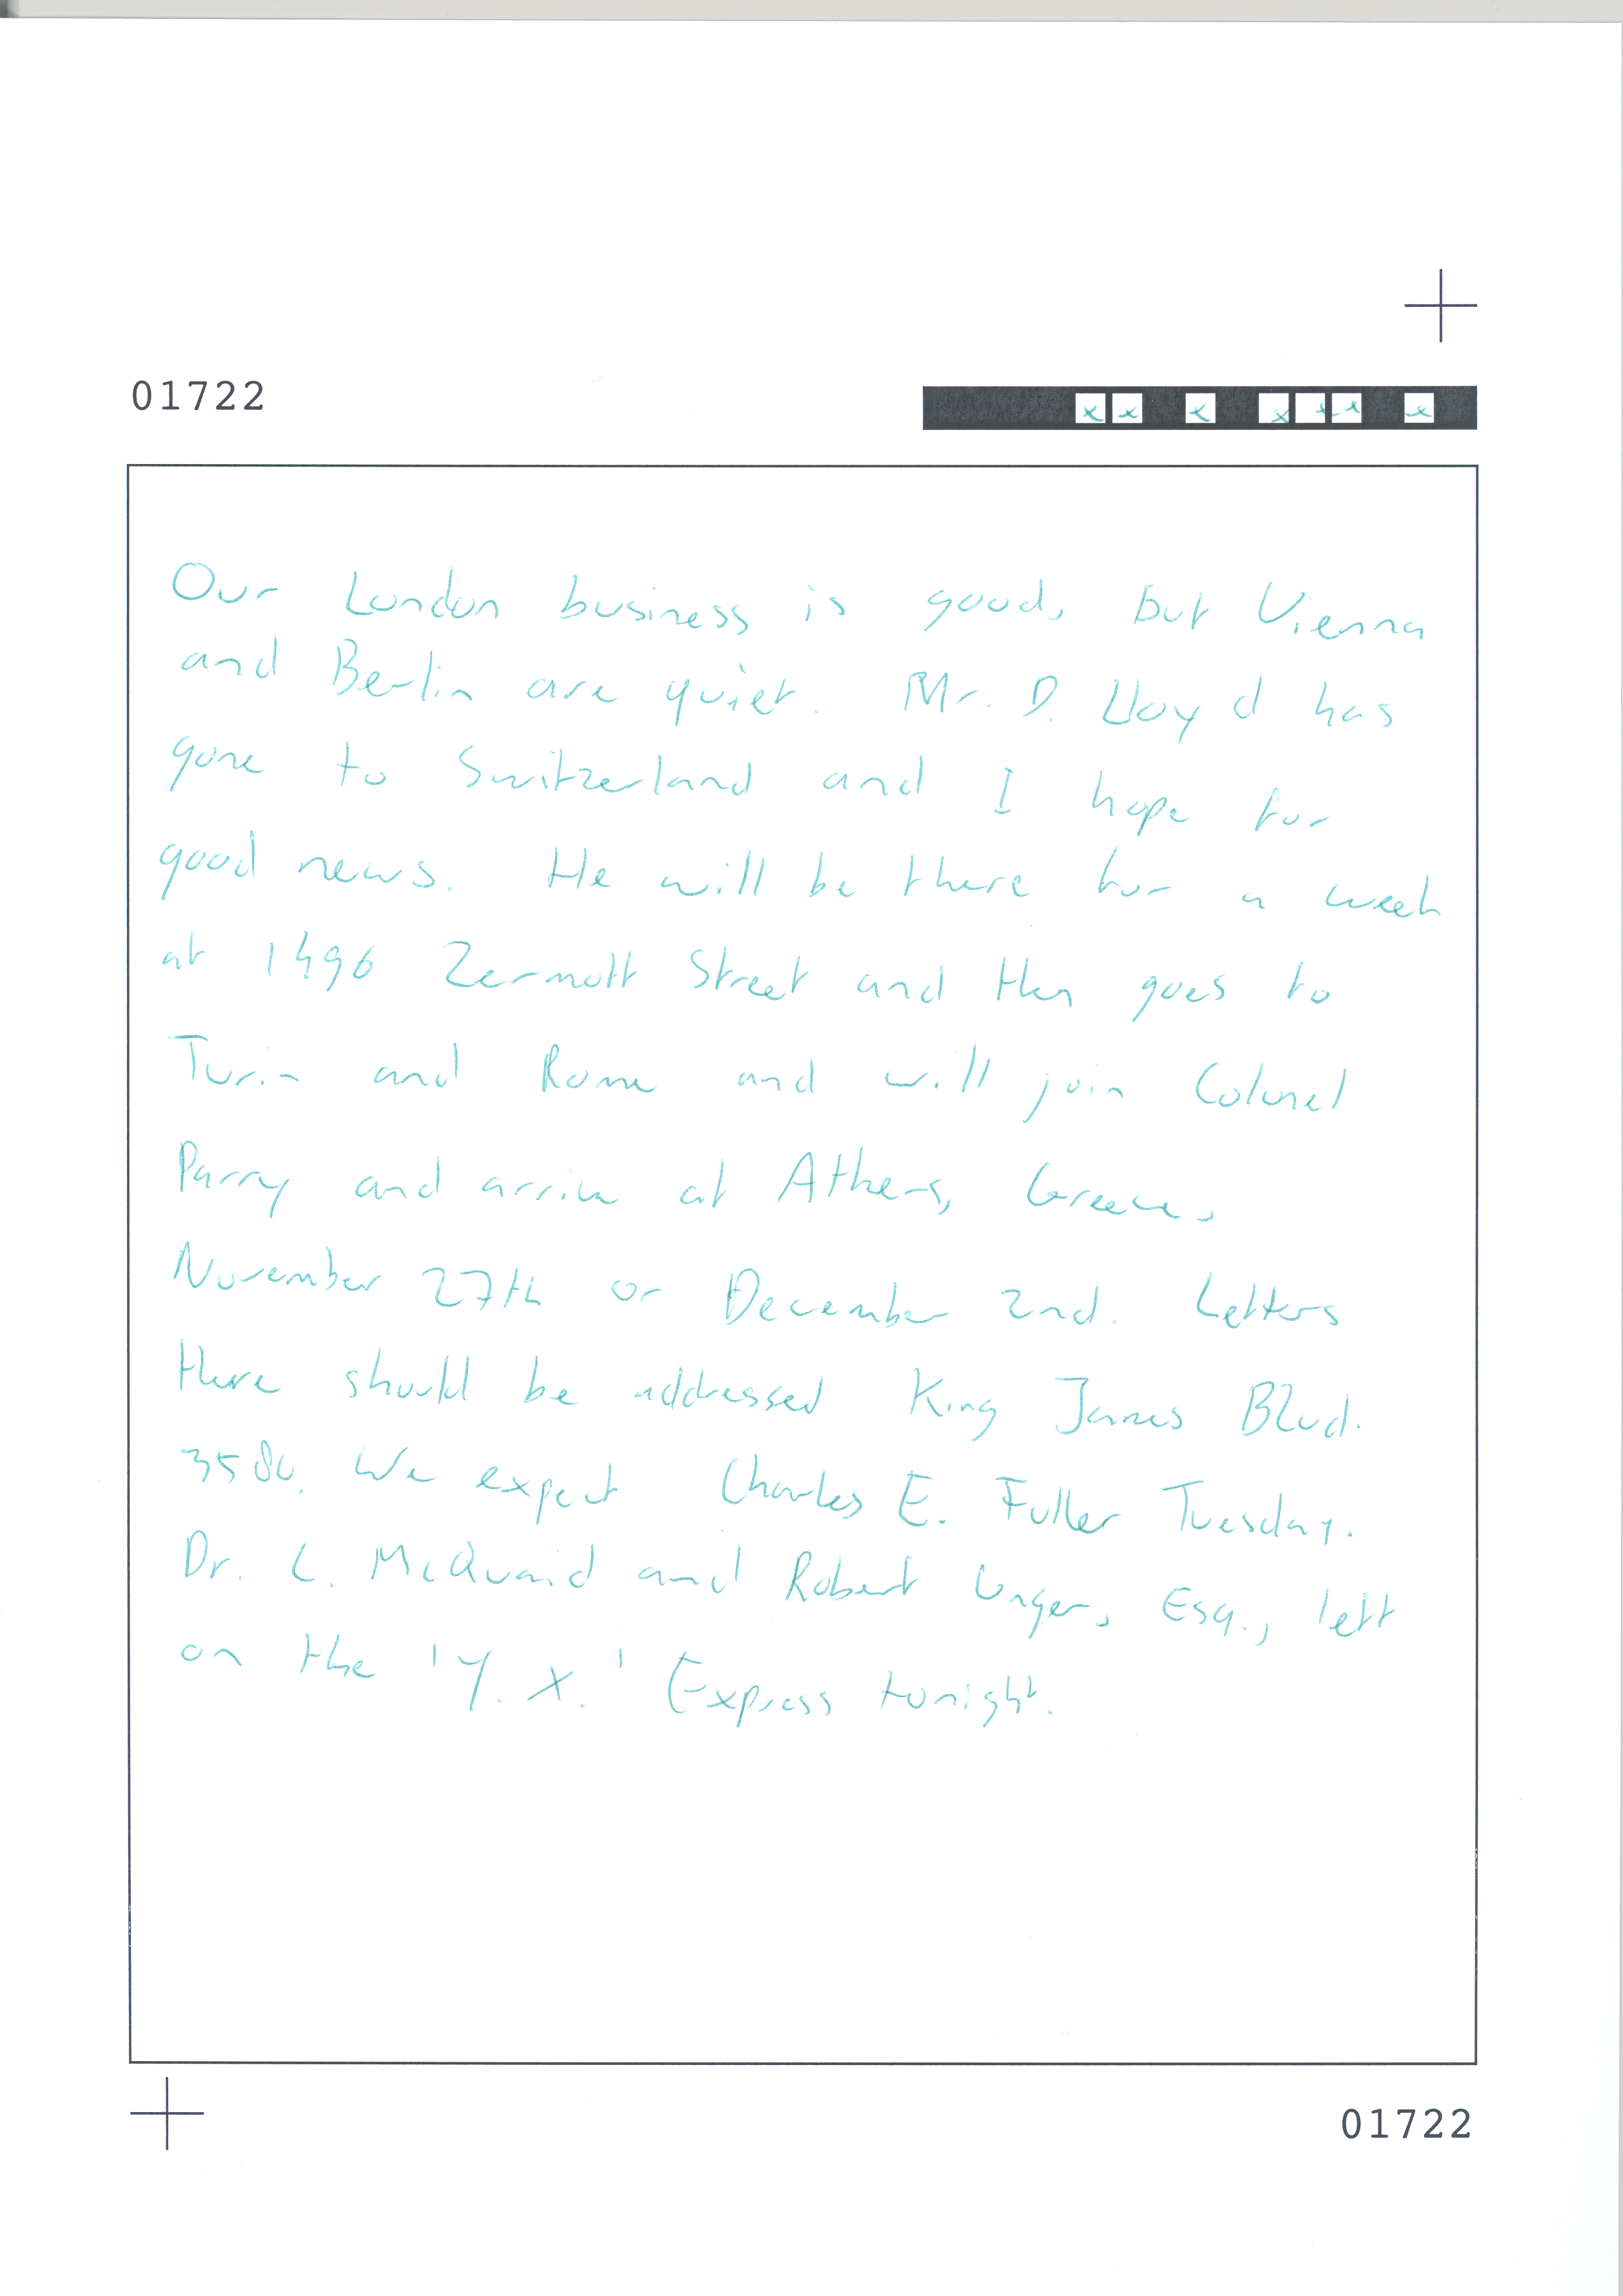 01722
Our London business is good, but Vienna
and Berlin are quiet. Mr. D. Lloyd has
gone to Switzerland and I hope for
good news. He will be there for a week
at 1496 Zermott Street and then goes to
Turin and Rome and will join Colonel
Parry and arrive at Athens, Greece,
November 27th or December 2nd. Letters
there should be addressed King James Blvd.
3580. We expect Charles E. Fuller Tuesday.
Dr. L. McQuaid and Robert Unger, Esq., left
on the 'Y. X.' Express tonight.
01722